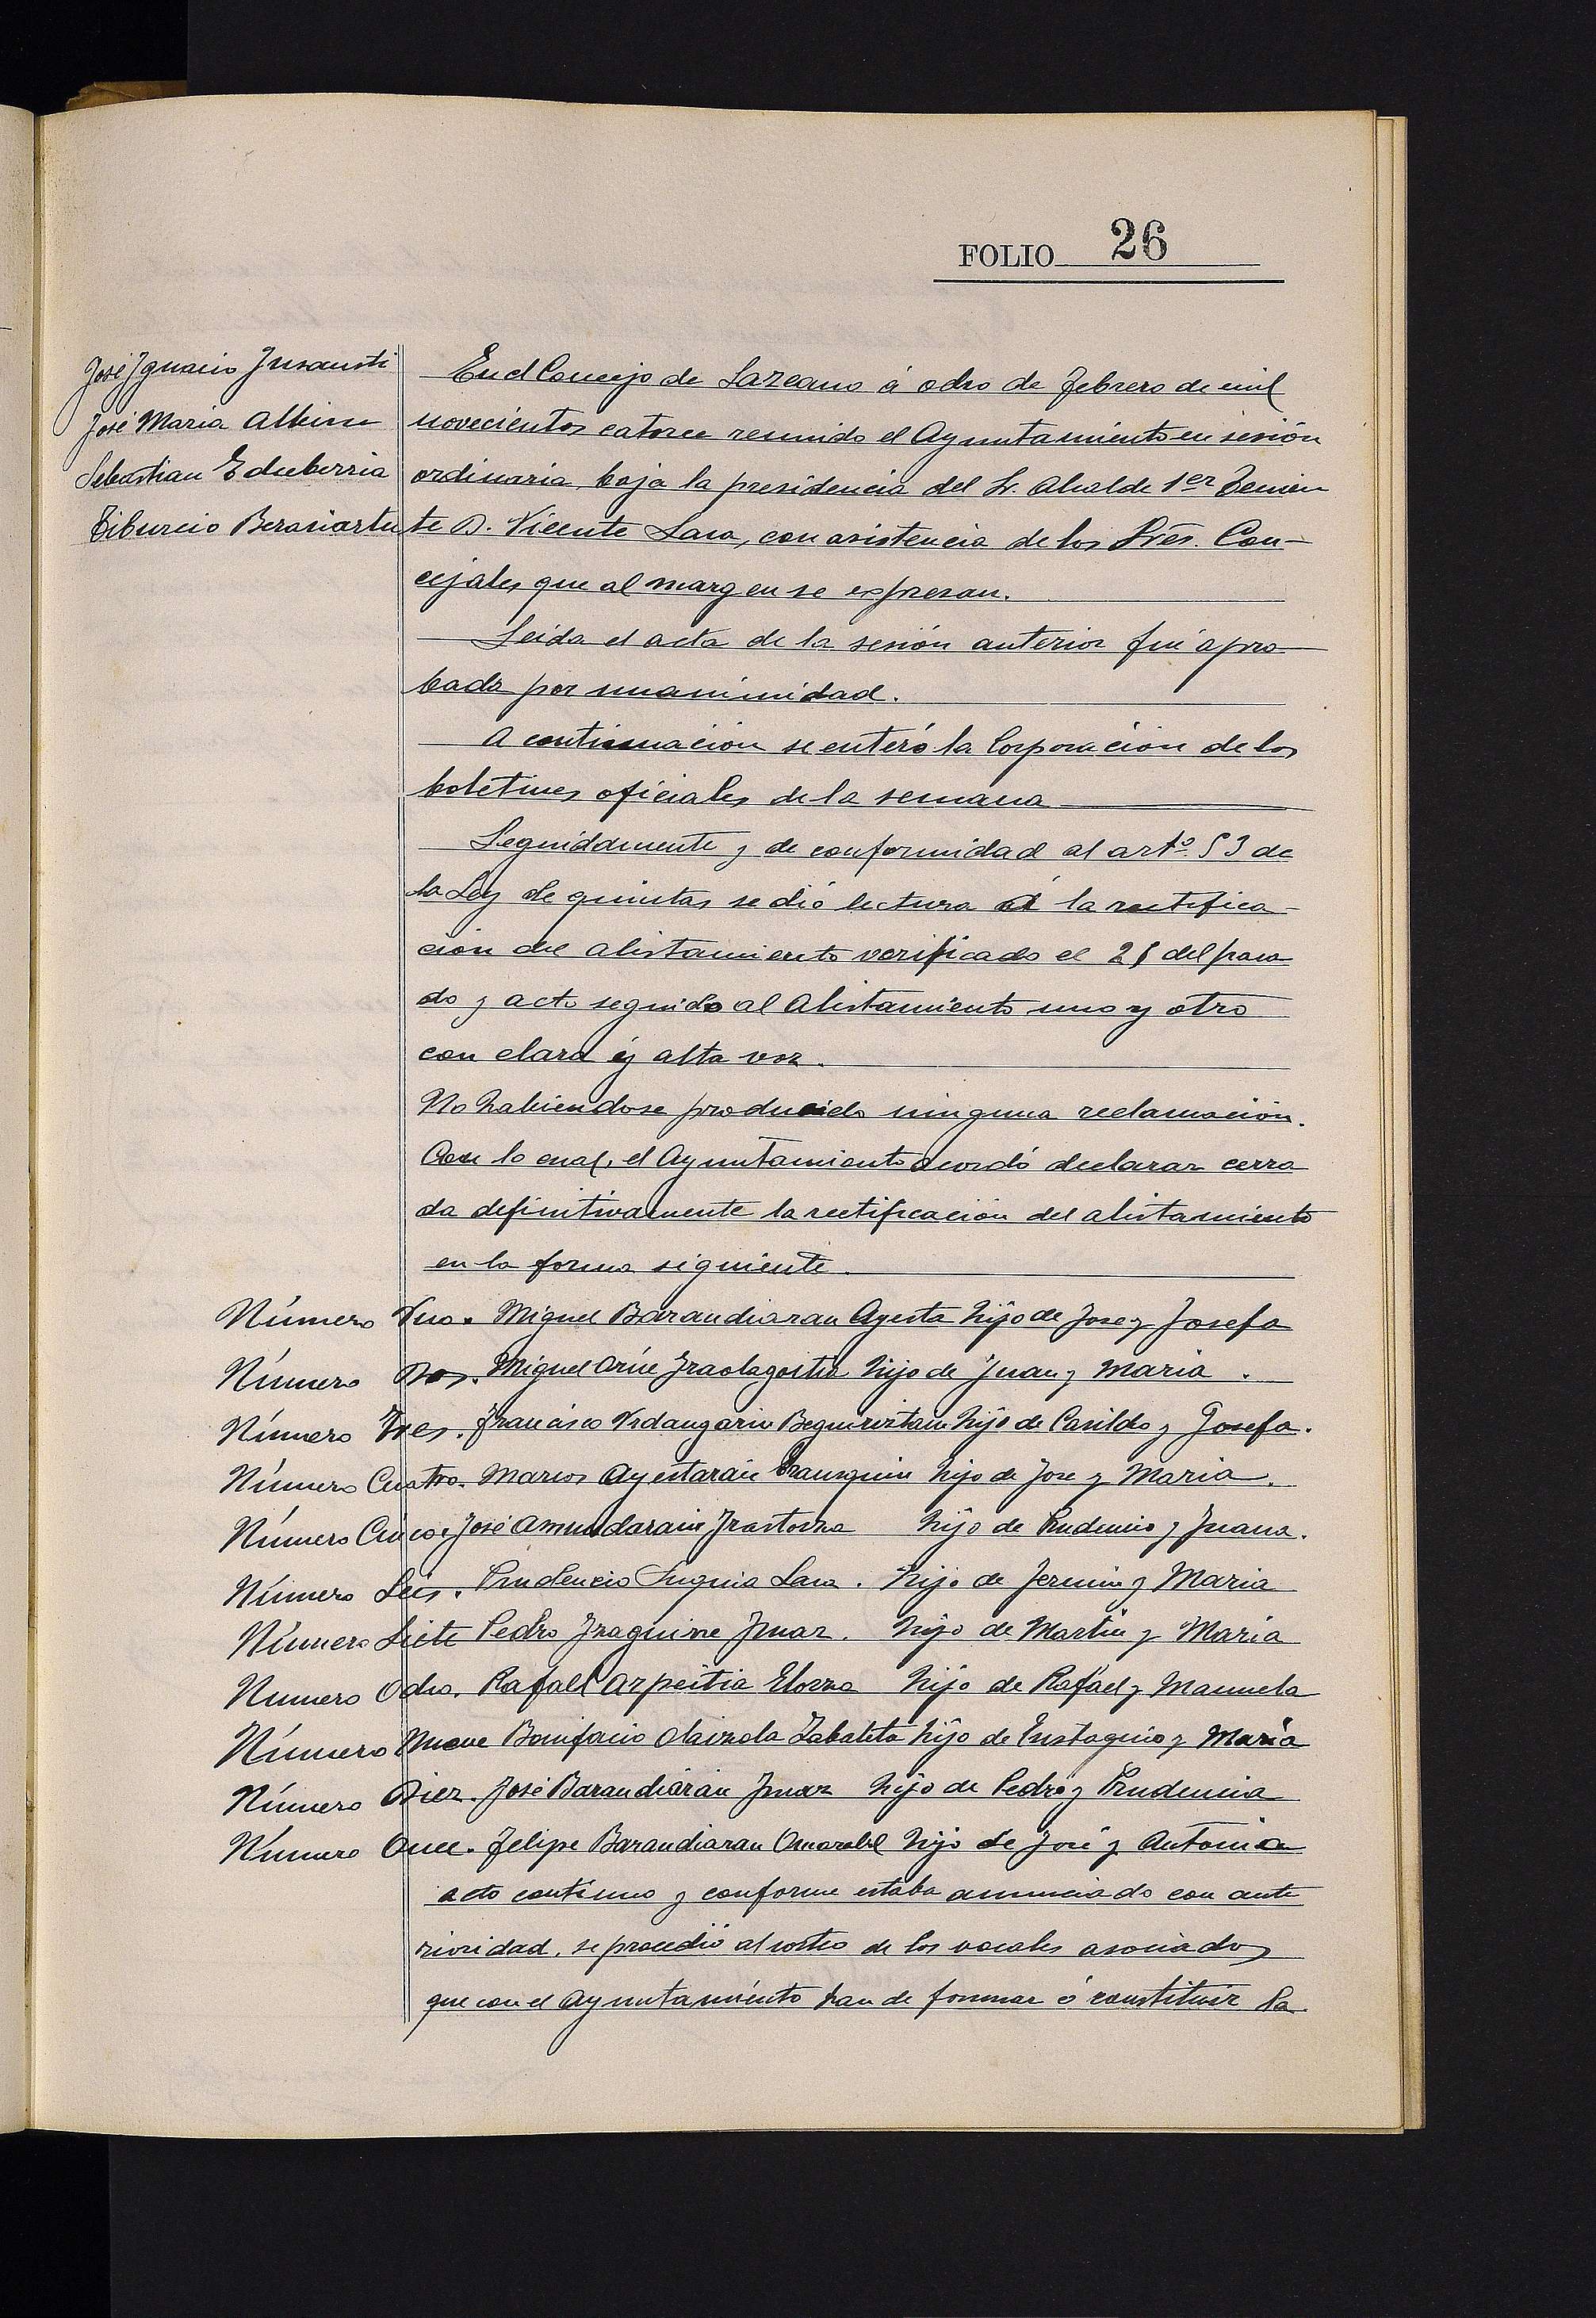 FOLIO 26
José Ignacio Insausti
José Maria Albisu
Sebastian Echeberria
Tiburcio Berasiartu
En el Concejo de Lazcano á ocho de febrero de mil
novecientos catorce reunido el Ayuntamiento en sesión
ordinaria, bajo la presidencia del Sr. Alcalde 1er Tenien
te D. Vicente Lasa, con asistencia de los Sres. Con-
cejales que al margen se expresan.
Leida el acta de la sesión anterior fué apro
bada por unanimidad.
A continuación se enteró la Corporación de los
boletines oficiales de la semana
Seguidamente y de conformidad al artº 53 de
la Ley de quintas se dió lectura á la rectifica-
ción del alistamiento verificado el 25 del pasa
do y acto seguido al Alistamiento uno y otro
con clara y alta voz.
No habiendose producido ninguna reclamación.
Con lo cual, el Ayuntamiento acordó declarar cerra
da definitivamente la rectificación del alistamiento
en la forma siguiente.
Número Uno. Miguel Barandiaran Ayesta hijo de Jose y Josefa
Número Dos. Miguel Iraolagoitia hijo de Juan y Maria.
Número Tres. Francisco Urdangarin Beguiristain hijo de Casildo y Josefa.
Número Cuatro. Marcos Ayestarain hijo de Jose y Maria.
Número Cinco. José Amundarain Irastorza hijo de Prudencio y Juana.
Número Seis. Prudencio Lasa. hijo de Fermin y Maria
Número Siete Pedro Izaguirre hijo de Martin y Maria
Numero Ocho. Rafael Azpeitia Elorza hijo de Rafael y Manuela
Número Nueve Bonifacio Olaizola Zabaleta hijo de Eustaquio y Maria
Número Diez. José Barandiarán hijo de Pedro y Prudencia
Número Once. Felipe Barandiaran hijo de José y Antonia
acto continuo y conforme estaba anunciado con ante
rioridad, se procedió al sorteo de los vocales asociados
que con el Ayuntamiento han de formar ó constituir la